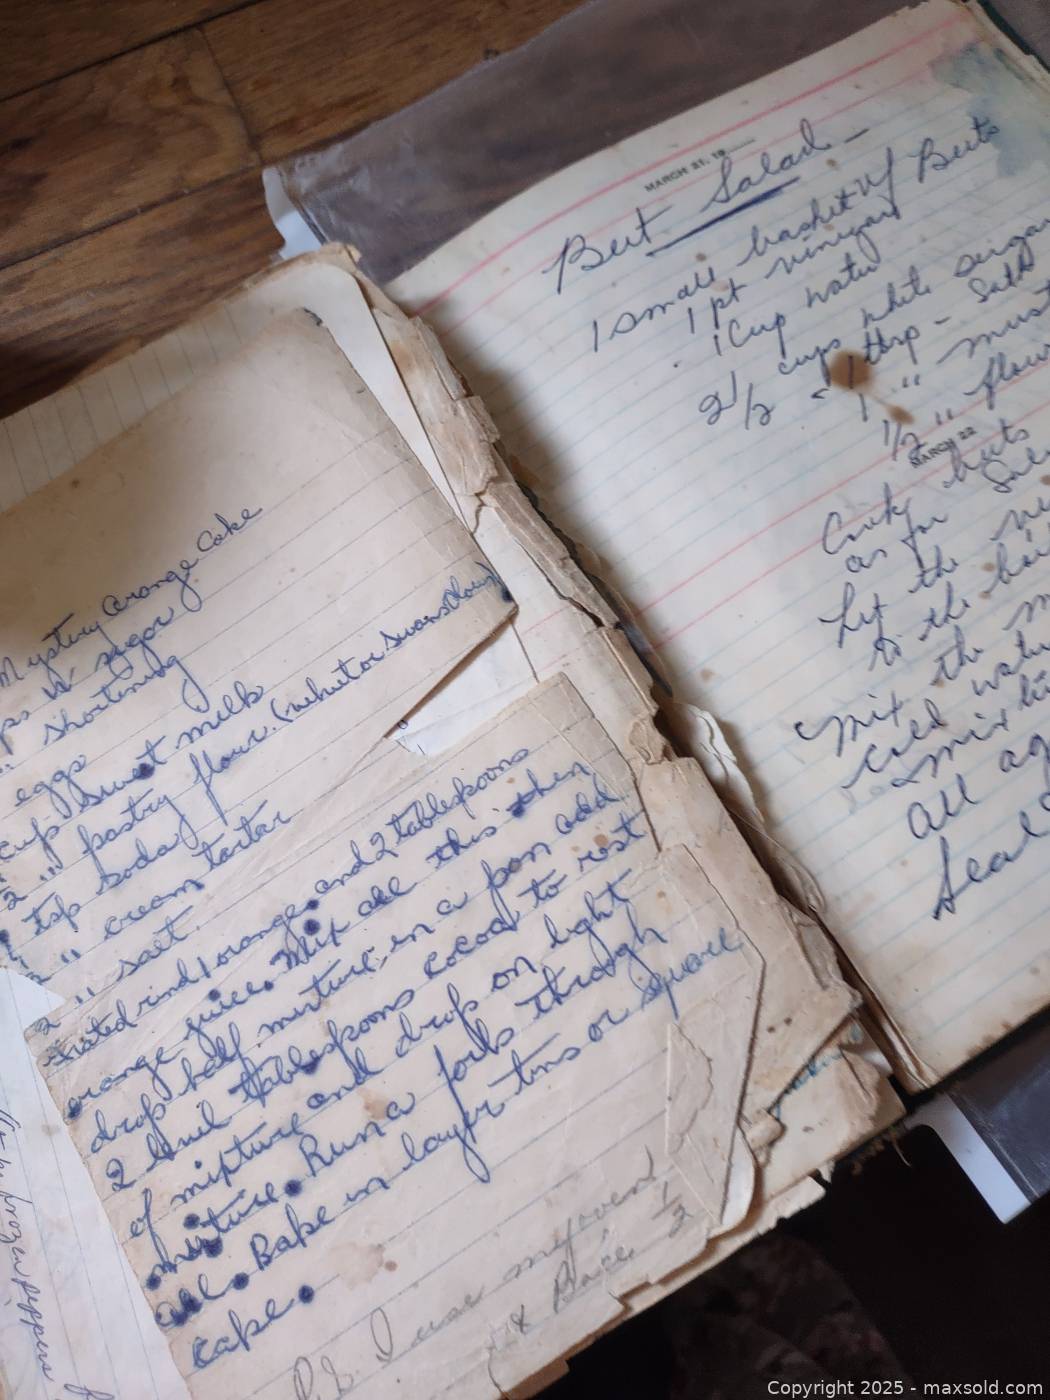 Mystery orange Cake
sugar
" shortning
eggs
cup sweet milk
2 " pastry flour. (white or swansdown)
1 tsp soda
" cream tartar
" salt.
grated rind 1 orange. and 2 tablespoons
orange juice. Mix all this then
drop half mixture, in a pan add
2 level tablespoons cocoa to rest
of mixture and drop on light
mixture. Run a fork through
all. Bake in layer tins or square
cake.
P.S. I use my oven
& Bake 1/2
frozen peppers
MARCH 21, 19
Beet Salad -
1 small basket of Beets
1 pt vinegar
1 Cup water
2 1/2 cups white sugar
1 tbsp - Salt
1 " must
1/2 " flour
MARCH 22
Cook beets
as for Sal
Put the
to the boi
Mix the m
cold wate
& mix
all ag
Seal
Copyright 2025 - maxsold.com